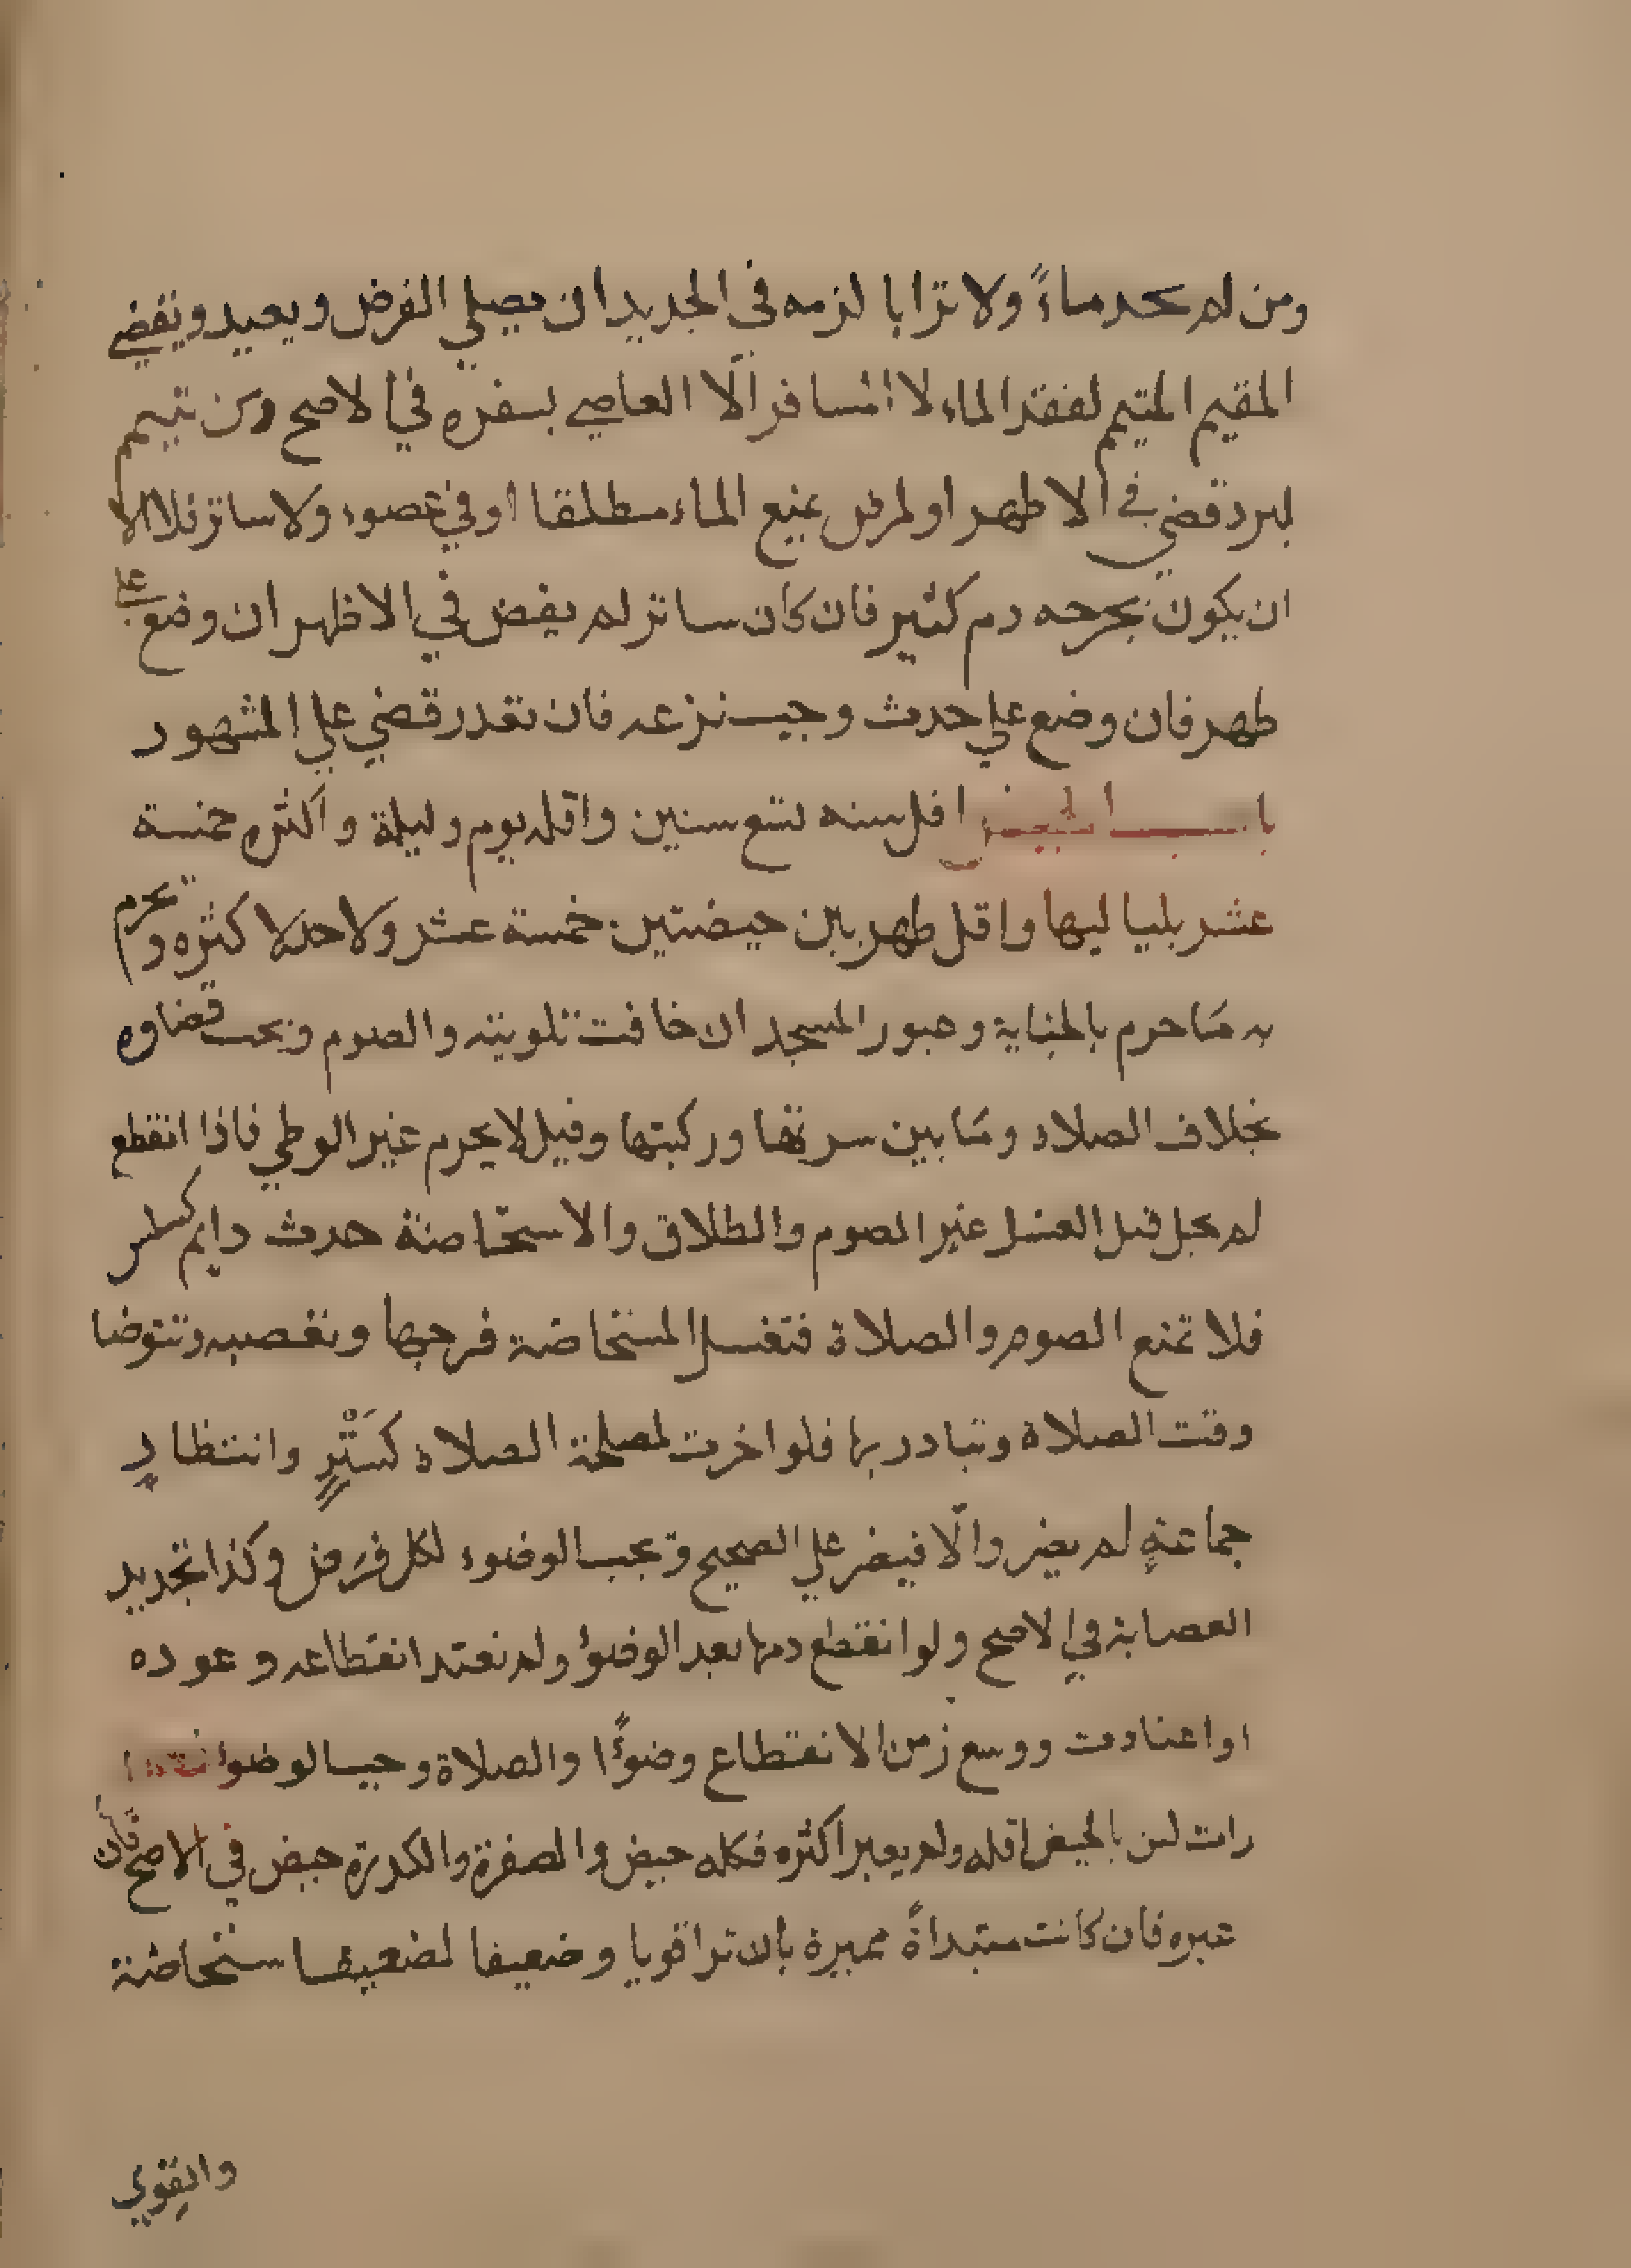 ومن لم يجد ماءً ولا ترابا لزمه في الجديد ان يصلي الفرض ويعيد ويقضي
المقيم المتيمم لفقد الماء لا المسافر الا العاصي بسفره في الاصح ومن تيمم
لبرد قضي في الاظهر او لمرض يمنع الماء مطلقا او في عضو ولا ساتر فلا الا
ان يكون بجرحه دم كثير فان كان ساتر لم يقض في الاظهر ان وضع علي
طهر فان وضع علي حدث وجب نزعه فان تعذر قضي علي المشهور
باب الحيض اقل سنه تسع سنين واقله يوم وليلة واكثره خمسة
عشر بلياليها واقل طهر بين حيضتين خمسة عشر ولا حد لاكثره ويحرم
به ما حرم بالجنابة وعبور المسجد ان خافت تلويثه والصوم ويجب قضاوه
بخلاف الصلاة وما بين سرتها وركبتها وقيل لا يحرم غير الوطي فاذا انقطع
لم يحل قبل الغسل غير الصوم والطلاق والاستحاضة حدث دايم كسلس
فلا تمنع الصوم والصلاة فتغسل المستحاضة فرجها وتعصبه وتتوضا
وقت الصلاة وتبادر بها فلو اخرت لمصلحة الصلاة كسَتْرٍ وانتظارِ
جماعةٍ لم يضر والّا فيضر علي الصحيح ويجب الوضوء لكل فرض وكذا تجديد
العصابة في الاصح ولو انقطع دمها بعد الوضوء ولم تعتد انقطاعه وعوده
او اعتادت ووسع زمن الانقطاع وضوءًا والصلاة وجب الوضوء
رات لسن الحيض اقله ولم يعبر اكثره فكله حيض والصفرة والكدرة حيض في الاصح فان
عبره فان كانت مبتداةً مميزة بان ترا قويا وضعيفا لضعيف استحاضة
والقوي